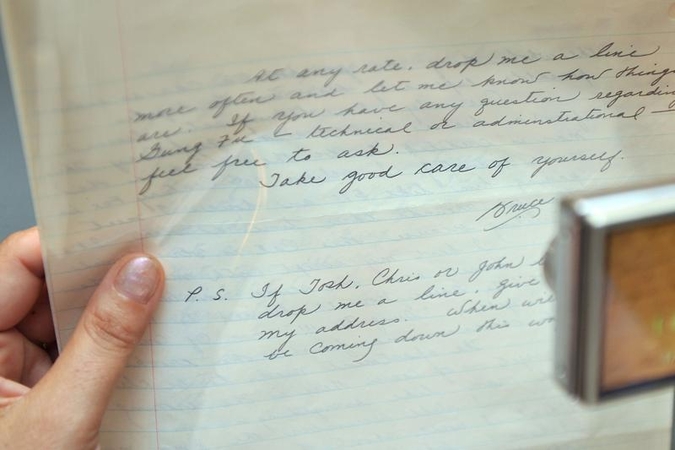 At any rate, drop me a line
more often and let me know how things
are. If you have any question regarding
Gung Fu — technical or adminstrational —
feel free to ask.
Take good care of yourself.
Bruce
P. S. If Tosh, Chris or John
drop me a line, give
my address. When
be coming down this